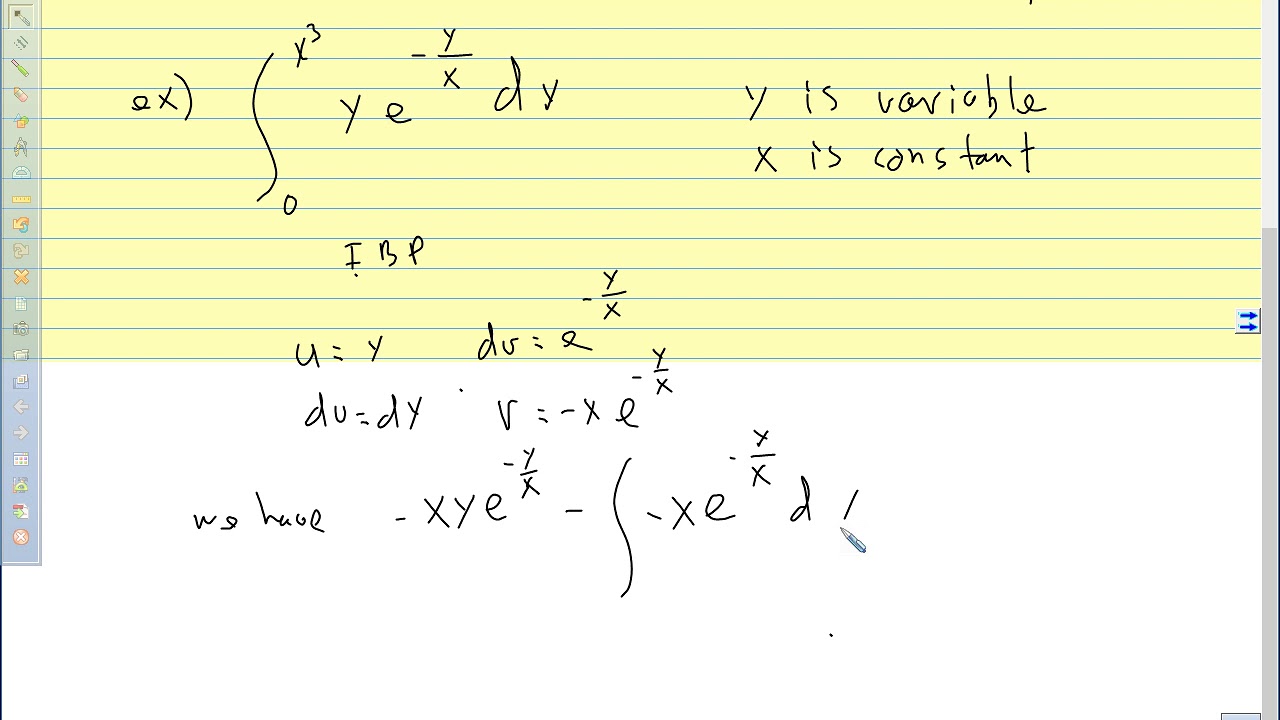 ex) ∫₀^{x³} y e^{-y/x} dy
y is variable
x is constant
IBP
u = y dv = e^{-y/x}
du = dy v = -x e^{-y/x}
we have -xye^{-y/x} - ∫ -xe^{-y/x} d